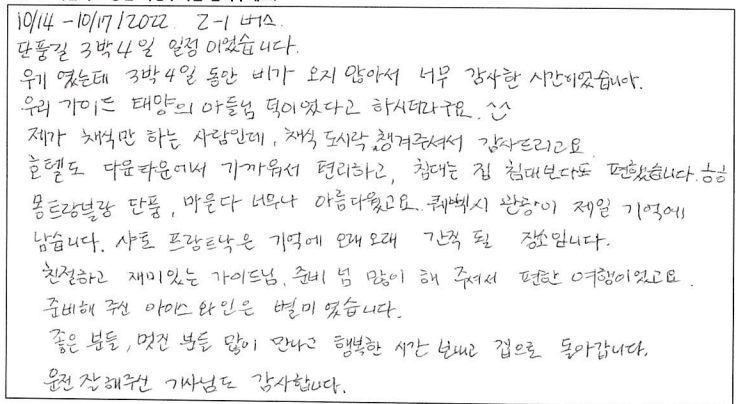 10/14 - 10/17/2022. 2-1 버스.
단풍길 3박4일 일정이었습니다.
우기 였는데 3박4일 동안 비가 오지 않아서 너무 감사한 시간이었습니다.
우리 가이드 태양의 아들님 덕이였다고 하시더라구요. ^^
제가 채식만 하는 사람인데, 채식 도시락 챙겨주셔서 감사드리고요
호텔도 다운타운에서 가까워서 편리하고, 침대는 집 침대보다도 편했습니다. ㅎㅎ
몽트랑블랑 단풍, 마을다 너무나 아름다웠고요. 퀘벡시 관광이 제일 기억에
남습니다. 샤토 프랑트낙은 기억에 오래오래 간직 될 장소입니다.
친절하고 재미있는 가이드님, 준비 넘 많이 해 주셔서 편한 여행이었고요.
준비해 주신 아이스와인은 별미 였습니다.
좋은 분들, 멋진 분들 많이 만나고 행복한 시간 보내고 집으로 돌아갑니다.
운전 잘해주신 기사님도 감사합니다.